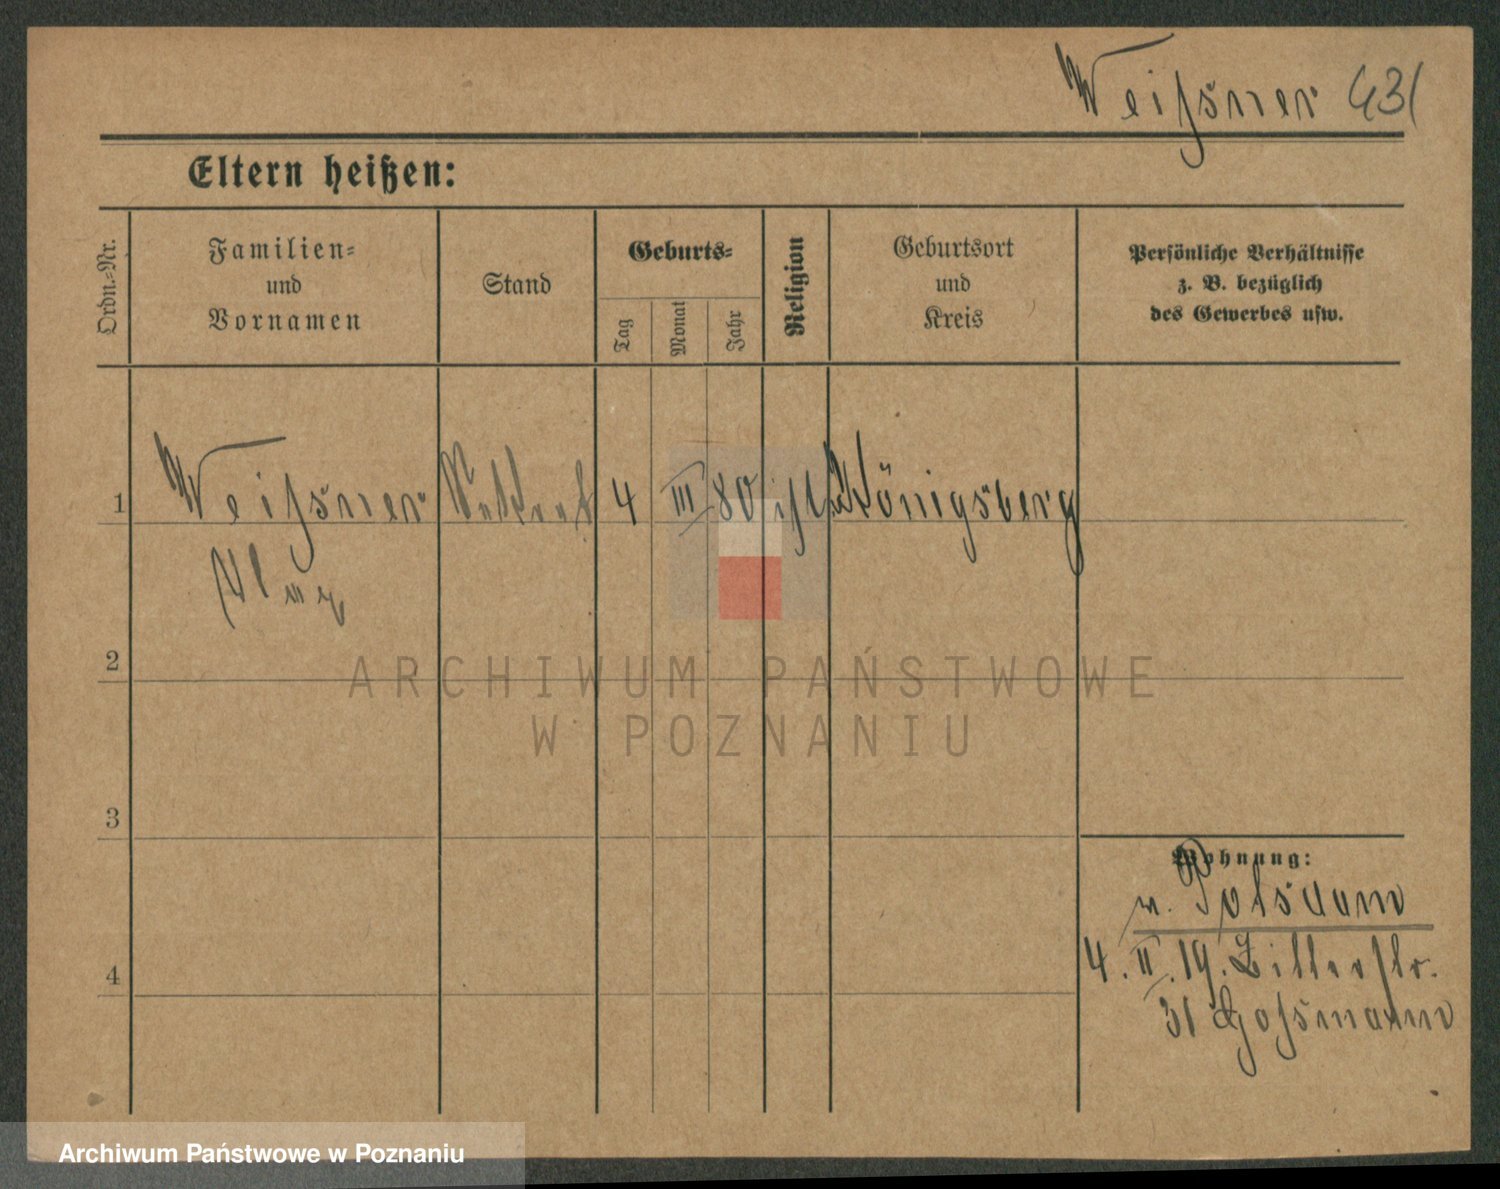 Weißner 431
Eltern heißen:
Ordn.-Nr.
Familien-
und
Vornamen
Stand
Geburts-
Tag
Monat
Jahr
Religion
Geburtsort
und
Kreis
Persönliche Verhältnisse
z. B. bezüglich
des Gewerbes usw.
1 Weißner 4 III 80 Königsberg
Max
2
ARCHIWUM PAŃSTWOWE
W POZNANIU
3
Wohnung:
n. Potsdam
4. II. 19. Ritterstr.
31 Goßmann
4
Archiwum Państwowe w Poznaniu